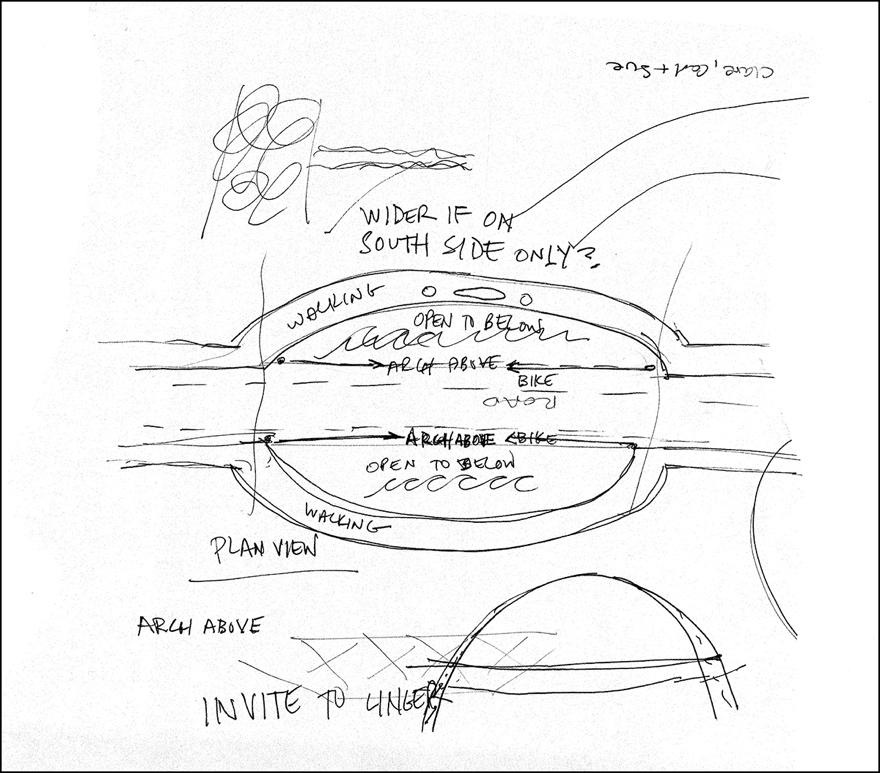 Clare, Carl + Sue
WIDER IF ON
SOUTH SIDE ONLY?
WALKING
OPEN TO BELOW
ARCH ABOVE
BIKE
ROAD
ARCH ABOVE BIKE
OPEN TO BELOW
WALKING
PLAN VIEW
ARCH ABOVE
INVITE TO LINGER